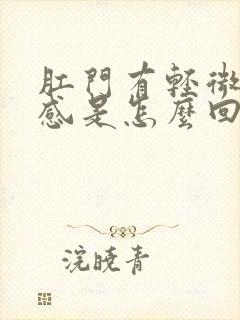 肛門有輕微
感是怎麼回
浣曉青